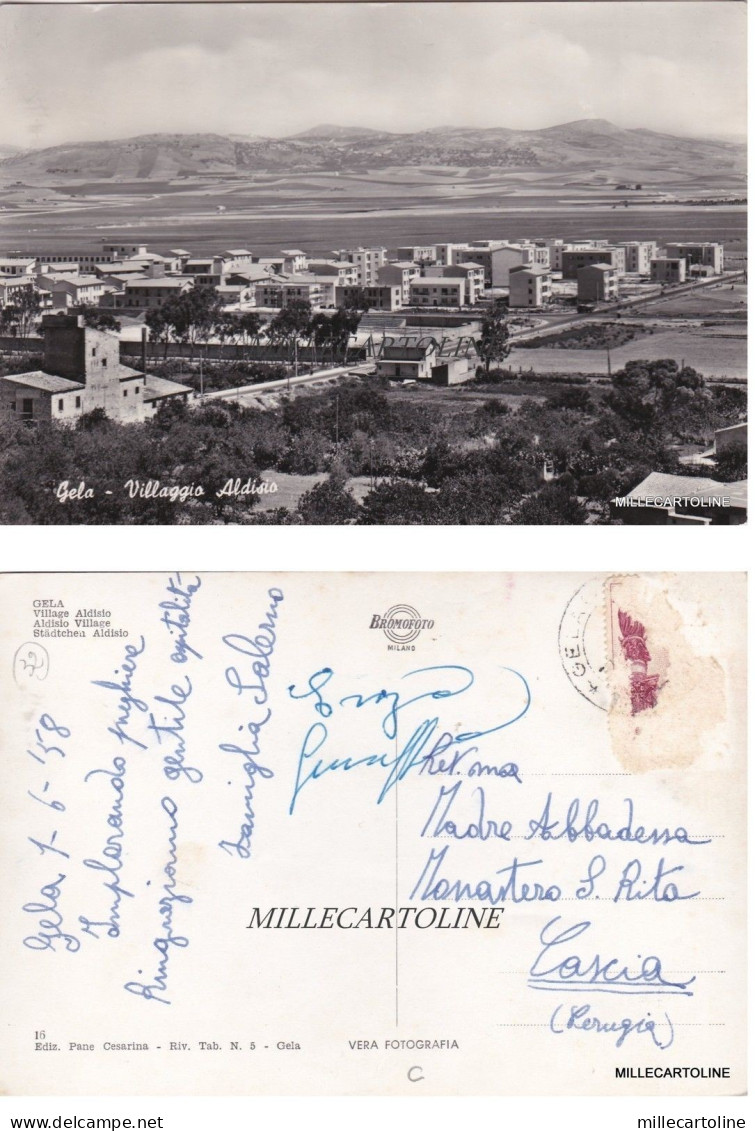 Gela - Villaggio Aldisio
MILLECARTOLINE
GELA
Village Aldisio
Aldisio Village
Städtchen Aldisio
32
BROMOFOTO
MILANO
GELA
Gela 1-6-'58
Implorando preghiere
Ringraziamo gentile ospitalità
Famiglia Salerno
Rev.ma
Madre Abbadessa
Monastero S. Rita
Cascia
(Perugia)
MILLECARTOLINE
16
Ediz. Pane Cesarina - Riv. Tab. N. 5 - Gela
VERA FOTOGRAFIA
C
MILLECARTOLINE
millecartoline
delcampe.net